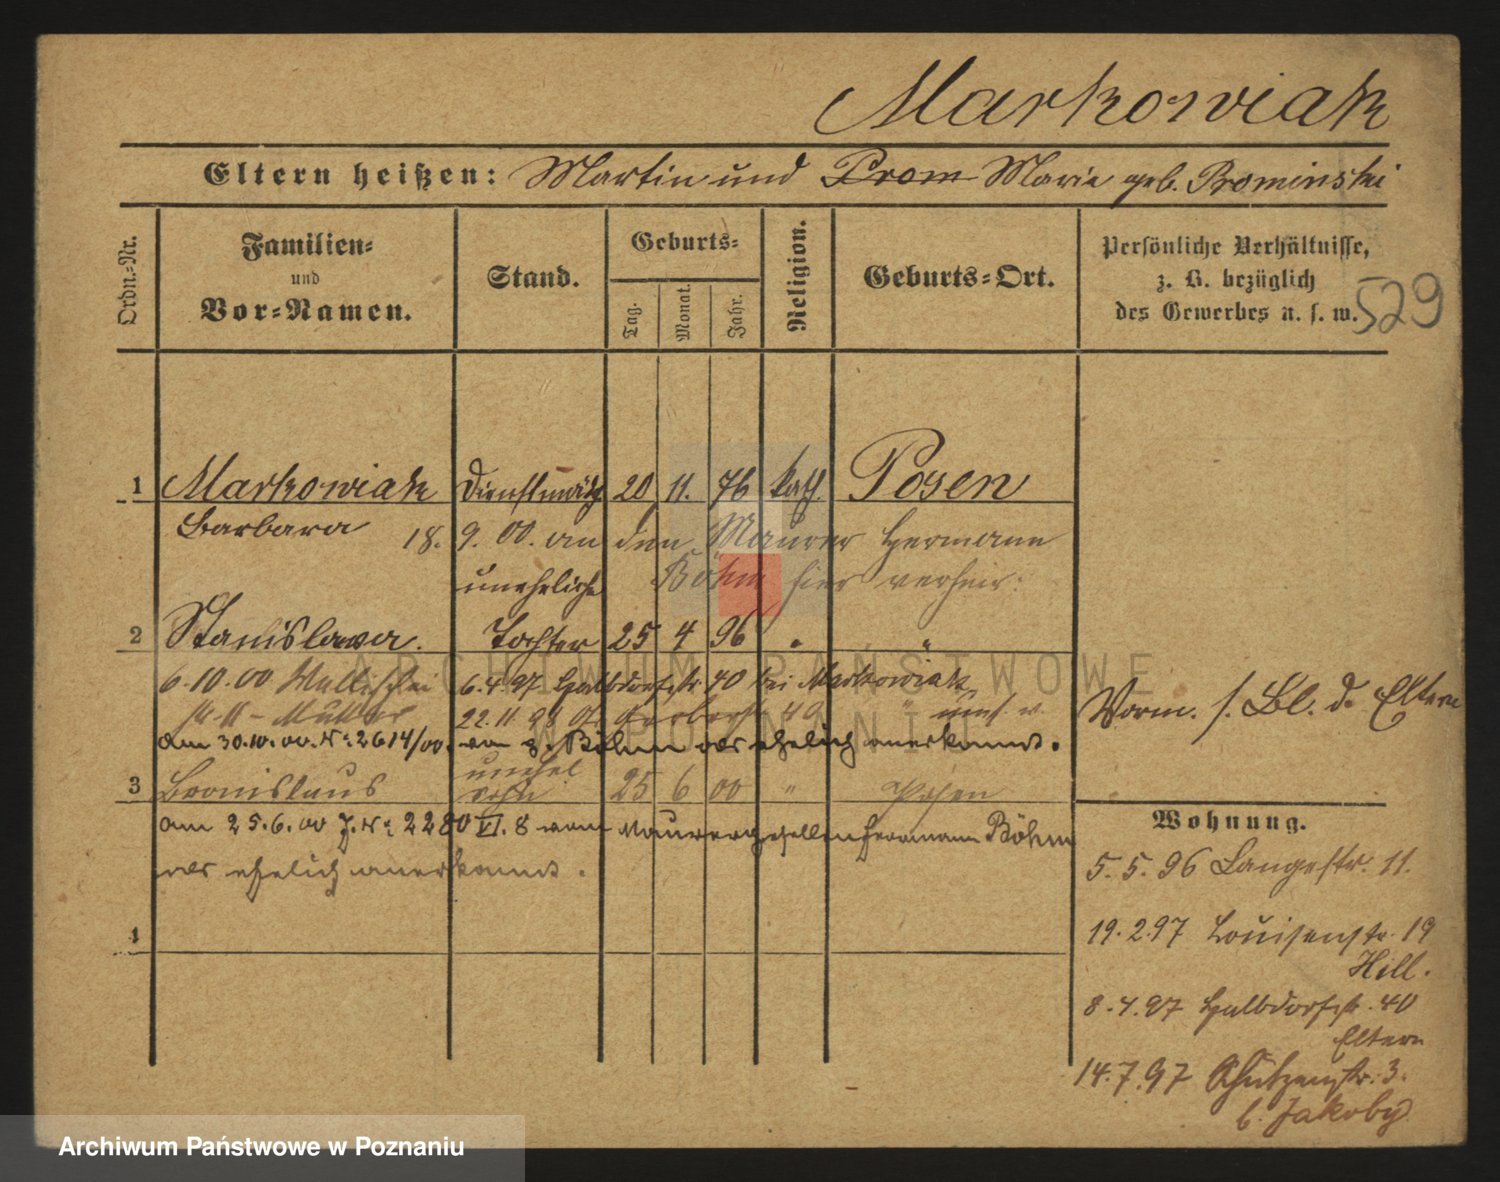 Markowiak
Eltern heißen: Martin und Prom Marie geb. Prominski
Ordn.-Nr.
Familien-
und
Vor-Namen.
Stand.
Geburts-
Tag.
Monat.
Jahr.
Religion.
Geburts-Ort.
Persönliche Verhältnisse,
z. B. bezüglich
des Gewerbes u. s. w.
529
1 Markowiak Dienstmädch 20 11. 76 kath. Posen
Barbara 18. 9. 00. an den Maurer Hermann
Böhm hier verheir.
uneheliche
2 Stanislawa. Tochter 25 4 96 " "
6.10.00 6.4.97 Halbdorfstr 40 bei Markowiak
22.11.98
am 30.10.00. Nr. 2614/00. von H. Böhm als ehelich anerkannt.
unehel
3 Bronislaus Sohn 25 6 00 " Posen
am 25.6.00 J. Nr. 2280 VI. 8 vom Maurergesellen Hermann Böhm
als ehelich anerkannt.
4
Vorm. s. Bl. d. Eltern
Wohnung.
5. 5. 96 Langestr. 11.
19. 2. 97 Louisenstr. 19
Hill.
8. 4. 97 Halbdorfstr. 40
Eltern
14. 7. 97 Schützenstr. 3.
b. Jakoby
ARCHIWUM PAŃSTWOWE
W POZNANIU
Archiwum Państwowe w Poznaniu